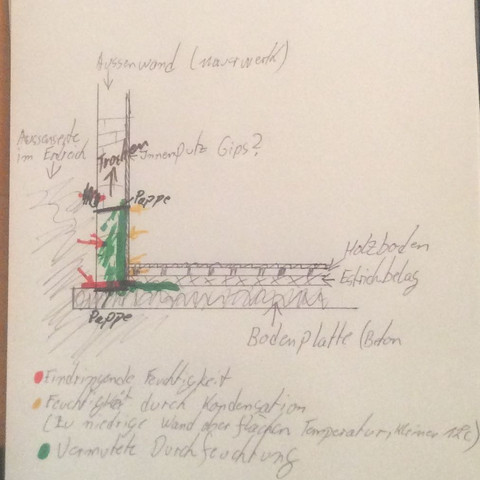 Aussenwand (Mauerwerk)
Aussenseite
im Erdreich
Trocken
Innenputz Gips?
Pappe
Holzboden
Estrichbelag
Pappe
Bodenplatte (Beton
Eindringende Feuchtigkeit
Feuchtigkeit durch Kondensation
(Zu niedrige Wand oberflächen Temperatur, kleiner 12c)
Vermutete Durchfeuchtung